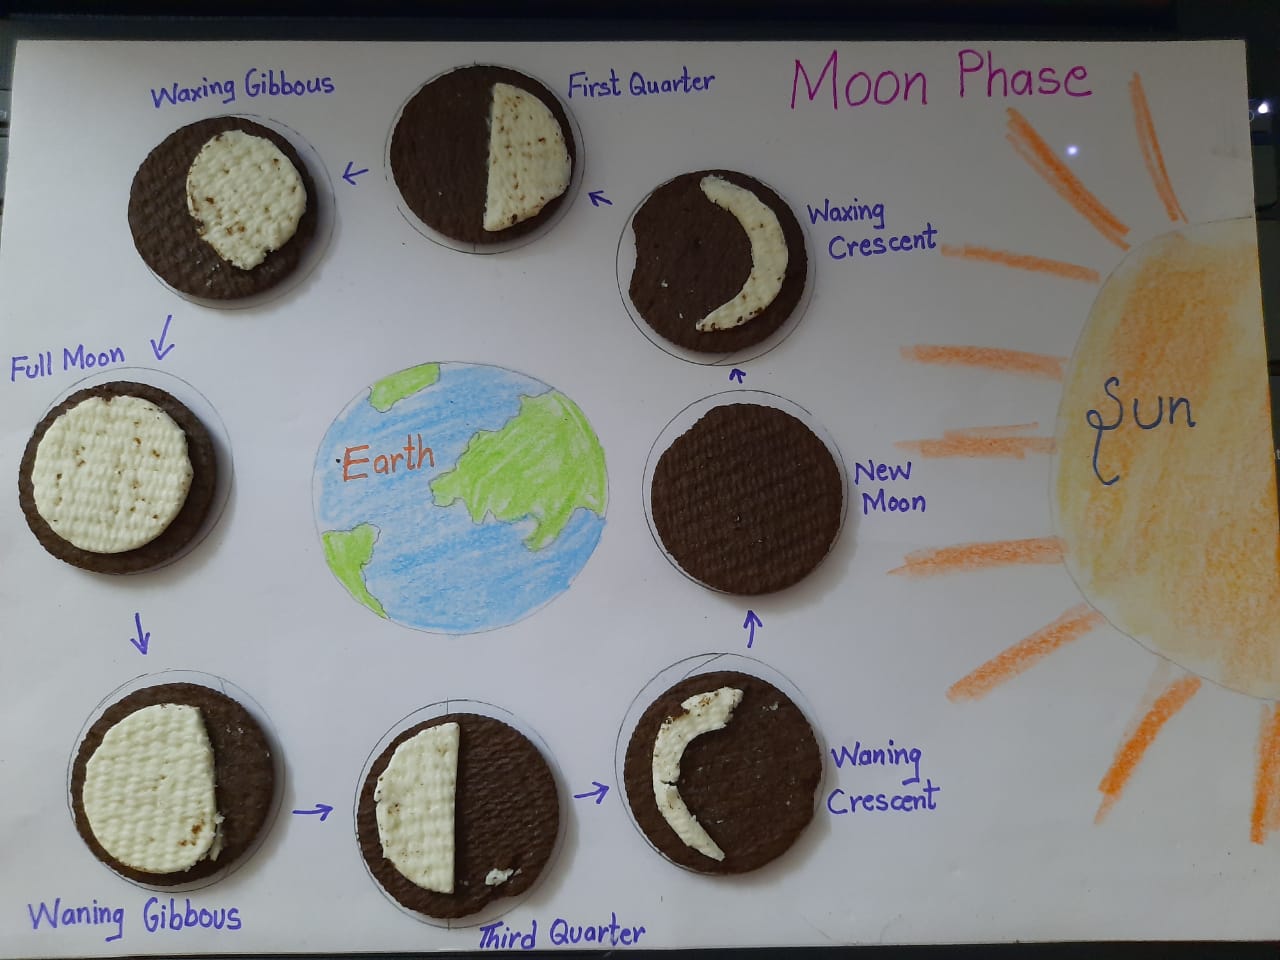 Moon Phase
Waxing Gibbous
First Quarter
Waxing
Crescent
Full Moon
Earth
Sun
New
Moon
Waning
Crescent
Waning Gibbous
Third Quarter